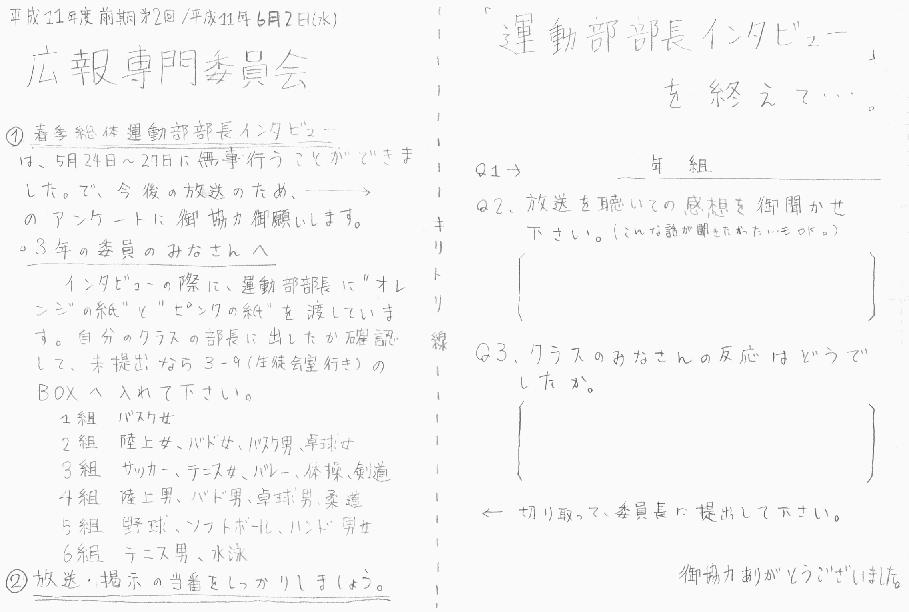 平成11年度前期第2回/平成11年6月2日(水)
広報専門委員会
① 春季総体運動部部長インタビュー
は、5月24日～27日に無事行うことができま
した。で、今後の放送のため、→
のアンケートに御協力御願いします。
○3年の委員のみなさんへ
インタビューの際に、運動部部長に"オレ
ンジの紙"と"ピンクの紙"を渡していま
す。自分のクラスの部長に出したか確認
して、未提出なら3-9(生徒会室行き)の
BOXへ入れて下さい。
1組 バスケ女
2組 陸上女、バド女、バスケ男、卓球女
3組 サッカー、テニス女、バレー、体操、剣道
4組 陸上男、バド男、卓球男、柔道
5組 野球、ソフトボール、ハンド男女
6組 テニス男、水泳
② 放送・掲示の当番をしっかりしましょう。
キリトリ線
「運動部部長インタビュー」
を終えて…。
Q1→ 年 組
Q2、放送を聴いての感想を御聞かせ
下さい。(こんな話が聞きたかったいもOK。)
Q3、クラスのみなさんの反応はどうで
したか。
← 切り取って、委員長に提出して下さい。
御協力ありがとうございました。